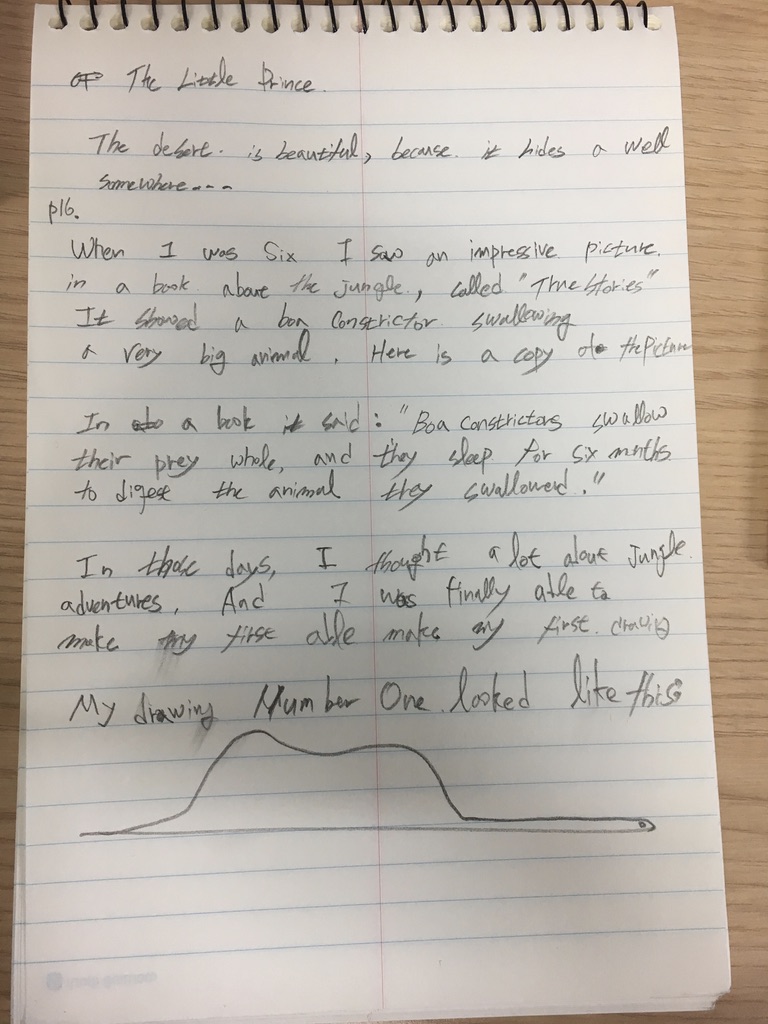 The Little Prince.
The desert. is beautiful, because. it hides a well
somewhere---
p16.
When I was Six I saw an impressive picture.
in a book. about the jungle, called "True Stories"
It showed a boa Constrictor swallowing
a very big animal. Here is a copy the Picture
In a book it said: "Boa constrictors swallow
their prey whole, and they sleep for six months
to digest the animal they swallowed."
In those days, I thought a lot about jungle
adventures, And I was finally able to
make my first able make my first. drawing
My drawing Number One. looked like this: